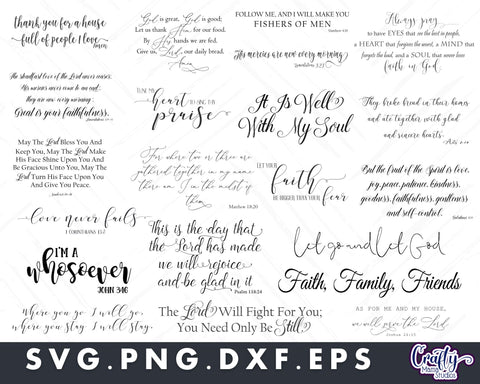 thank you for a house
full of people I love
Amen
The steadfast love of the Lord never ceases.
His mercies never come to an end;
they are new every morning;
Great is your faithfulness.
May The Lord Bless You And
Keep You, May The Lord Make
His Face Shine Upon You And
Be Gracious Unto You, May The
Lord Turn His Face Upon You
And Give You Peace.
love never fails
1 CORINTHIANS 13:7
I'M A
whosoever
JOHN 3:16
Where you go I will go,
where you stay I will stay.
God is great, God is good;
Let us thank Him for our food.
By His hands we are fed.
Give us, Lord, our daily bread.
Amen
TUNE MY
heart
TO SING THY
praise
For where two or three are
gathered together in my name
there am I in the midst of
them
Matthew 18:20
This is the day that
the Lord has made
we will rejoice
and be glad in it
Psalm 118:24
The Lord Will Fight For You;
You Need Only Be Still
FOLLOW ME, AND I WILL MAKE YOU
FISHERS OF MEN
Matthew 4:19
His mercies are new every morning
Lamentations 3:23
It Is Well
With My Soul
LET YOUR
faith
BE BIGGER THAN YOUR
fear
Always pray
to have EYES that see the best in people,
a HEART that forgives the worst, a MIND that
forgets the bad, and a SOUL that never loses
faith in God.
They broke bread in their homes
and ate together with glad
and sincere hearts.
Acts 2:46
But the fruit of the Spirit is love,
joy, peace, patience, kindness,
goodness, faithfulness, gentleness
and self-control.
let go and let God
Faith, Family, Friends
AS FOR ME AND MY HOUSE,
we will serve the Lord
Joshua 24:15
SVG.PNG.DXF.EPS
Crafty
Mama
Studios